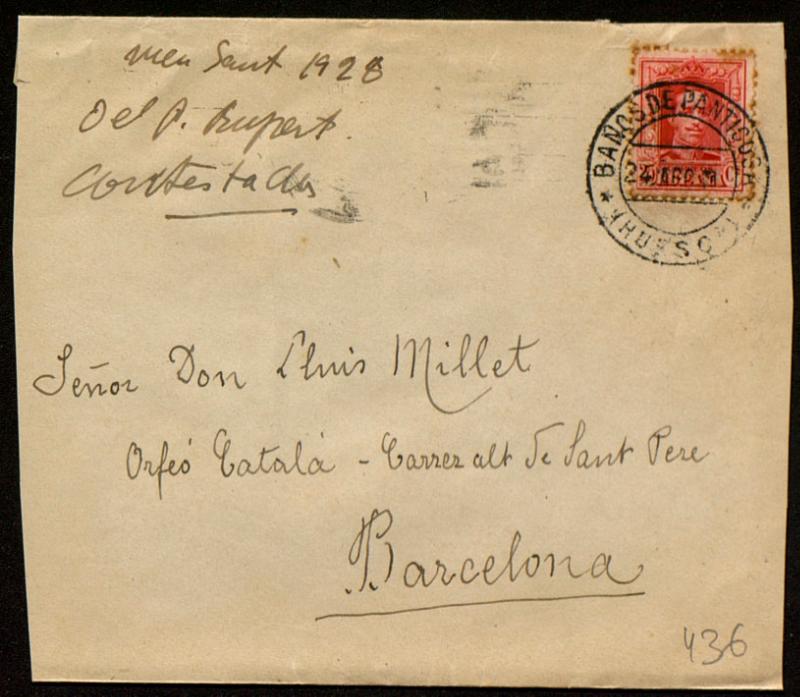 meu Sant 1928
Del P. Rupert.
Contestada
BAÑOS DE PANTICOSA
24 AGO 28
* (HUESCA) *
Señor Don Lluis Millet
Orfeó Catalá - Carrer alt de Sant Pere
Barcelona
436